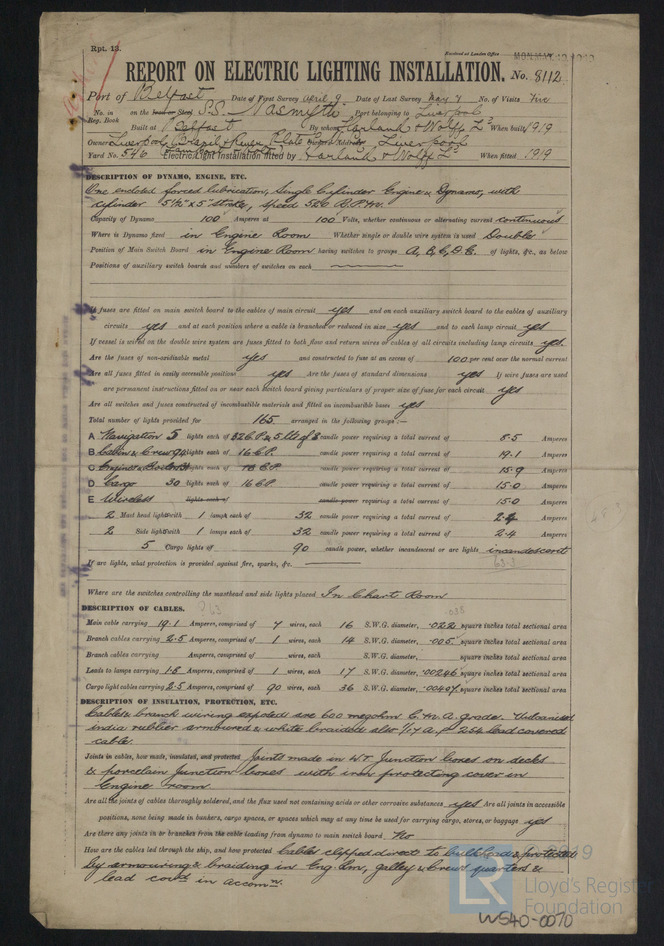 Rpt. 13.
Received at London Office
REPORT ON ELECTRIC LIGHTING INSTALLATION. No. 8112
Port of Belfast Date of First Survey April 9 Date of Last Survey May 7 No. of Visits Five
No. in Reg. Book on the Iron or Steel S.S. Nasmyth Port belonging to Liverpool
Built at Belfast By whom Harland & Wolff Ld When built 1919
Owners Liverpool, Brazil & River Plate Owners' Address Liverpool
Yard No. 546 Electric Light Installation fitted by Harland & Wolff Ld When fitted 1919
DESCRIPTION OF DYNAMO, ENGINE, ETC.
One enclosed forced lubrication, Single Cylinder Engine & Dynamo, with
cylinder 5½" x 5" stroke, speed R.P.M.
Capacity of Dynamo 100 Amperes at 100 Volts, whether continuous or alternating current continuous
Where is Dynamo fixed in Engine Room Whether single or double wire system is used Double
Position of Main Switch Board in Engine Room having switches to groups A, B, C, D E. of lights, &c., as below
Positions of auxiliary switch boards and numbers of switches on each
If fuses are fitted on main switch board to the cables of main circuit yes and on each auxiliary switch board to the cables of auxiliary
circuits yes and at each position where a cable is branched or reduced in size yes and to each lamp circuit yes
If vessel is wired on the double wire system are fuses fitted to both flow and return wires or cables of all circuits including lamp circuits yes.
Are the fuses of non-oxidizable metal yes and constructed to fuse at an excess of 100 per cent over the normal current
Are all fuses fitted in easily accessible positions yes Are the fuses of standard dimensions yes If wire fuses are used
are permanent instructions fitted on or near each switch board giving particulars of proper size of fuse for each circuit yes
Are all switches and fuses constructed of incombustible materials and fitted on incombustible bases yes
Total number of lights provided for 165 arranged in the following groups :—
A Navigation 5 lights each of 32 C.P. & 5 lts of 8 candle power requiring a total current of 8.5 Amperes
B Cabin & Crew 94 lights each of 16 C.P. candle power requiring a total current of 19.1 Amperes
C Engine & Boiler lights each of 16 C.P. candle power requiring a total current of 15.9 Amperes
D Cargo 30 lights each of 16 C.P. candle power requiring a total current of 15.0 Amperes
E Wireless lights each of candle power requiring a total current of 15.0 Amperes
2 Mast head light with 1 lamps each of 32 candle power requiring a total current of 2.4 Amperes
2 Side light with 1 lamps each of 32 candle power requiring a total current of 2.4 Amperes
5 Cargo lights of 90 candle power, whether incandescent or arc lights incandescent
If arc lights, what protection is provided against fire, sparks, &c.
Where are the switches controlling the masthead and side lights placed In Chart Room
DESCRIPTION OF CABLES.
Main cable carrying 19.1 Amperes, comprised of 7 wires, each 16 S.W.G. diameter, .022 square inches total sectional area
Branch cables carrying 2.5 Amperes, comprised of 1 wires, each 14 S.W.G. diameter, .005 square inches total sectional area
Branch cables carrying Amperes, comprised of wires, each S.W.G. diameter, square inches total sectional area
Leads to lamps carrying 1.8 Amperes, comprised of 1 wires, each 17 S.W.G. diameter, .00246 square inches total sectional area
Cargo light cables carrying 2.5 Amperes, comprised of 90 wires, each 36 S.W.G. diameter, .00407 square inches total sectional area
DESCRIPTION OF INSULATION, PROTECTION, ETC.
Cables & branch wiring exposed are 600 megohm C.M.A. grade. Vulcanised
india rubber armoured & white braided also 1/17 A.P. 254 lead covered
cable.
Joints in cables, how made, insulated, and protected Joints made in W.T. Junction boxes on decks
& porcelain junction boxes with iron protecting cover in
Engine room
Are all the joints of cables thoroughly soldered, and the flux used not containing acids or other corrosive substances yes Are all joints in accessible
positions, none being made in bunkers, cargo spaces, or spaces which may at any time be used for carrying cargo, stores, or baggage yes
Are there any joints in or branches from the cable leading from dynamo to main switch board No
How are the cables led through the ship, and how protected Cables clipped direct to bulkhead & protected
by armouring & braiding in Eng. Rm, galley & crews quarters &
lead covd in accomn.
2019
LR
Lloyd's Register
Foundation
W540-0070